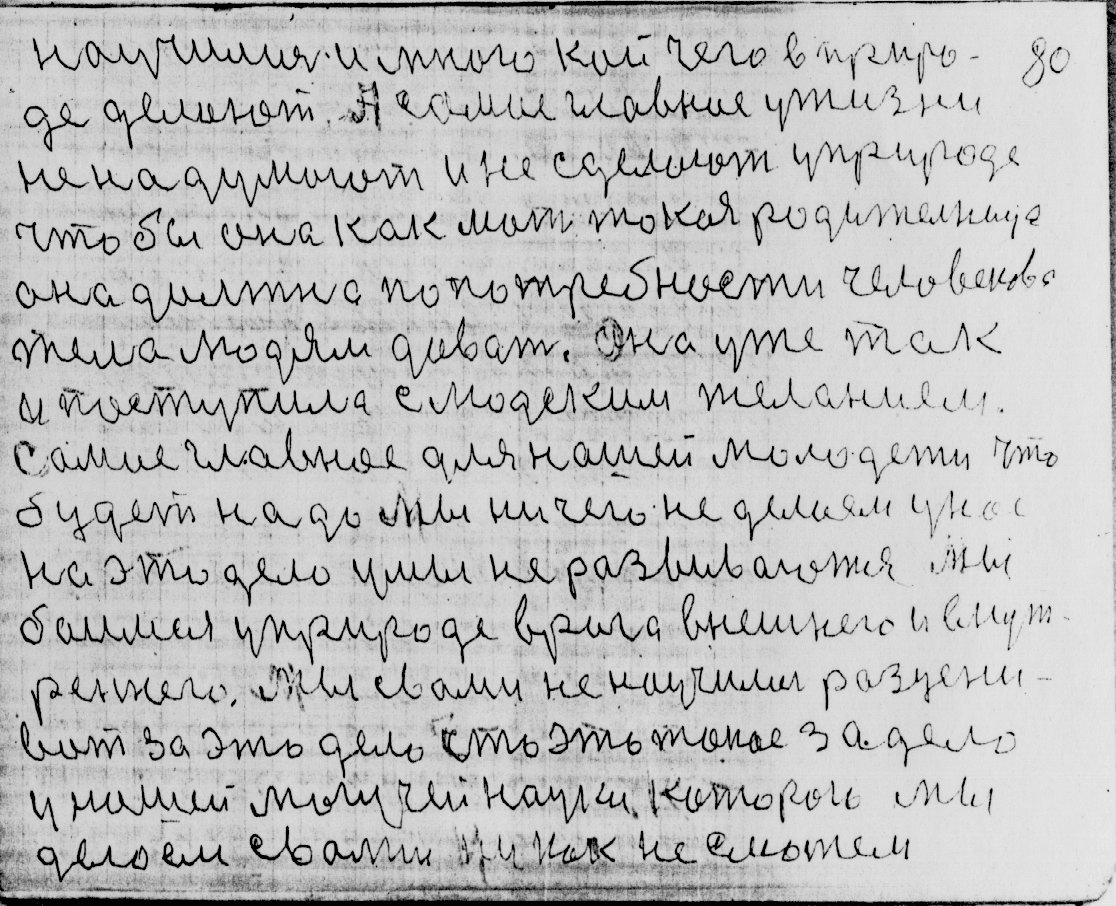 научилися и много кой чего в приро- 80
де делают. А самое главное у жизни
не надумают и не сделают у природе
чтобы она как мать такая родителница
она должна по потребности человекова
тела людям дават. Она уже так
и поступила с людским желанием.
Самое главное для нашей молодежи что
будет надо мы ничего не делаем у нас
на это дело умы не развиваются мы
боимся у природе врага внешнего и внут-
реннего. Мы с вами не научилис разцени-
ват за это дело что это такое за дело
у нашей могучей науки которого мы
делаем с вами ни как не сможем